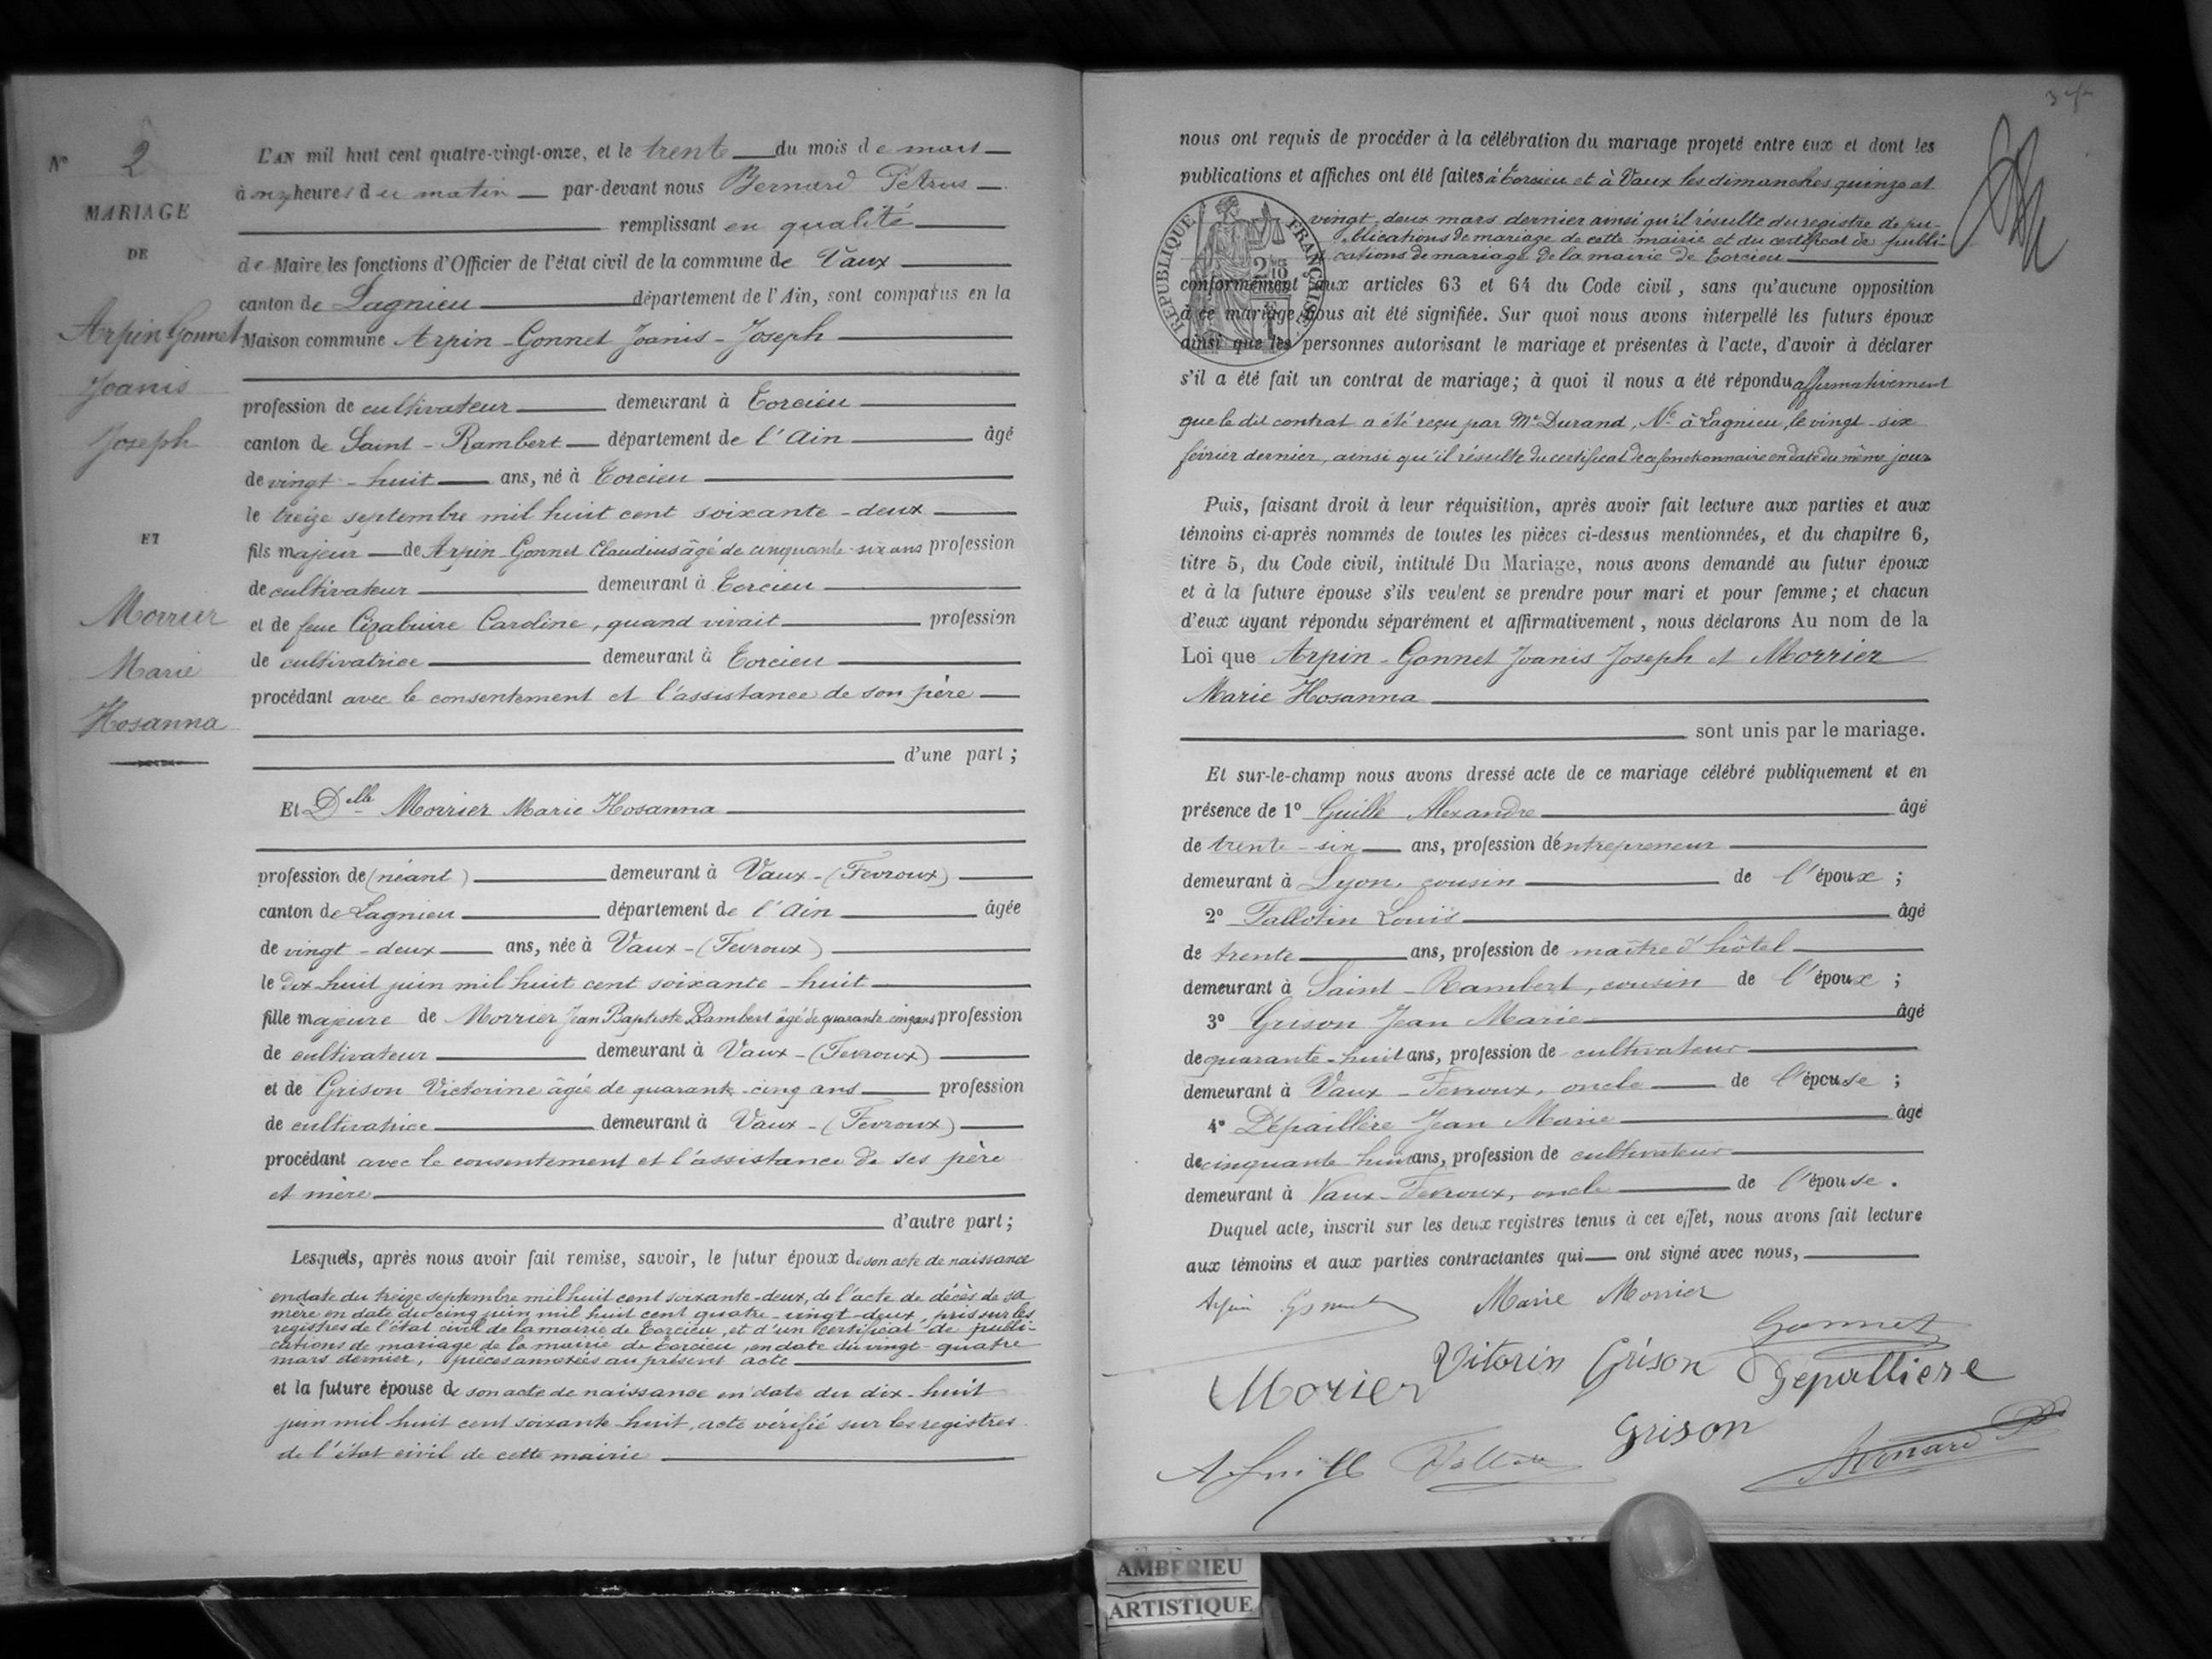 N° 2
MARIAGE
DE
Arpin Gonnet
Joanis
Joseph
ET
Morrier
Marie
Hosanna
L'AN mil huit cent quatre-vingt-onze, et le trente du mois de mars
à onze heures du matin par-devant nous Bernard Pétrus
remplissant en qualité
de Maire les fonctions d'Officier de l'état civil de la commune de Vaux
canton de Lagnieu département de l'Ain, sont comparus en la
Maison commune Arpin-Gonnet Joanis-Joseph
profession de cultivateur demeurant à Torcieu
canton de Saint-Rambert département de l'Ain âgé
de vingt-huit ans, né à Torcieu
le treize septembre mil huit cent soixante-deux
fils majeur de Arpin-Gonnet Claudius âgé de cinquante-six ans profession
de cultivateur demeurant à Torcieu
et de feue Cizabuire Caroline, quand vivait profession
de cultivatrice demeurant à Torcieu
procédant avec le consentement et l'assistance de son père
d'une part;
Et Delle Morrier Marie Hosanna
profession de (néant) demeurant à Vaux-(Fevroux)
canton de Lagnieu département de l'Ain âgée
de vingt-deux ans, née à Vaux-(Fevroux)
le dix-huit juin mil huit cent soixante-huit
fille majeure de Morrier Jean Baptiste Rambert âgé de quarante cinq ans profession
de cultivateur demeurant à Vaux-(Fevroux)
et de Grison Victorine âgée de quarante-cinq ans profession
de cultivatrice demeurant à Vaux-(Fevroux)
procédant avec le consentement et l'assistance de ses père
et mère
d'autre part;
Lesquels, après nous avoir fait remise, savoir, le futur époux de son acte de naissance
en date du treize septembre mil huit cent soixante-deux, de l'acte de décès de sa
mère en date du cinq juin mil huit cent quatre-vingt-deux, pris sur les
registres de l'état civil de la mairie de Torcieu, et d'un certificat de publi-
cations de mariage de la mairie de Torcieu, en date du vingt-quatre
mars dernier, pièces annexées au présent acte
et la future épouse de son acte de naissance en date du dix-huit
juin mil huit cent soixante-huit, acte vérifié sur les registres
de l'état civil de cette mairie
nous ont requis de procéder à la célébration du mariage projeté entre eux et dont les
publications et affiches ont été faites à Torcieu et à Vaux les dimanches quinze et
vingt-deux mars dernier ainsi qu'il résulte du registre de pu-
blications de mariage de cette mairie et du certificat de publi-
cations de mariage de la mairie de Torcieu
REPUBLIQUE FRANÇAISE
conformément aux articles 63 et 64 du Code civil, sans qu'aucune opposition
à ce mariage nous ait été signifiée. Sur quoi nous avons interpellé les futurs époux
ainsi que les personnes autorisant le mariage et présentes à l'acte, d'avoir à déclarer
s'il a été fait un contrat de mariage; à quoi il nous a été répondu affirmativement
que le dit contrat a été reçu par Me Durand, Nre à Lagnieu, le vingt-six
février dernier, ainsi qu'il résulte du certificat de ce fonctionnaire en date du même jour
Puis, faisant droit à leur réquisition, après avoir fait lecture aux parties et aux
témoins ci-après nommés de toutes les pièces ci-dessus mentionnées, et du chapitre 6,
titre 5, du Code civil, intitulé Du Mariage, nous avons demandé au futur époux
et à la future épouse s'ils veulent se prendre pour mari et pour femme; et chacun
d'eux ayant répondu séparément et affirmativement, nous déclarons Au nom de la
Loi que Arpin-Gonnet Joanis Joseph et Morrier
Marie Hosanna
sont unis par le mariage.
Et sur-le-champ nous avons dressé acte de ce mariage célébré publiquement et en
présence de 1° Guille Alexandre âgé
de trente-six ans, profession d'entrepreneur
demeurant à Lyon, cousin de l'époux;
2° Tallotin Louis âgé
de trente ans, profession de maître d'hôtel
demeurant à Saint-Rambert, cousin de l'époux;
3° Grison Jean Marie âgé
de quarante-huit ans, profession de cultivateur
demeurant à Vaux-Fevroux, oncle de l'épouse;
4° Dépaillère Jean Marie âgé
de cinquante huit ans, profession de cultivateur
demeurant à Vaux-Fevroux, oncle de l'épouse.
Duquel acte, inscrit sur les deux registres tenus à cet effet, nous avons fait lecture
aux témoins et aux parties contractantes qui ont signé avec nous,
Arpin Gonnet Marie Morrier
Gonnet
Morier Vitorin Grison Depalliere
Grison
A Guille Bernard P
AMBERIEU
ARTISTIQUE